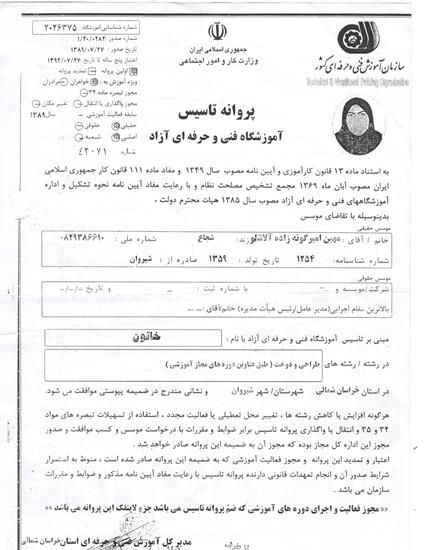 شماره شناسایی آموزشگاه ۲۰۲۶۳۷۵
شماره صدور: ۱/۲۰/۰۲۸۲
تاریخ صدور: ۱۳۸۹/۰۷/۲۷
اعتبار پنج ساله تا تاریخ: ۱۳۹۴/۰۷/۲۷
اولین پروانه تمدید پروانه
ویژه آموزش به: خواهران برادران
مجوز تبصره ماده ۳۴
مجوز واگذاری یا انتقال تغییر مکان
سابقه فعالیت آموزشی از سال ۱۳۸۹
حقیقی حقوقی
اصلی شعبه
شماره ۴۳۰۷۱
جمهوری اسلامی ایران
وزارت کار و امور اجتماعی
سازمان آموزش فنی و حرفه ای کشور
Technical & Vocational Training Organization
پروانه تاسیس
آموزشگاه فنی و حرفه ای آزاد
به استناد ماده ۱۳ قانون کارآموزی و آیین نامه مصوب سال ۱۳۴۹ و مفاد ماده ۱۱۱ قانون کار جمهوری اسلامی
ایران مصوب آبان ماه ۱۳۶۹ مجمع تشخیص مصلحت نظام و با رعایت مفاد آیین نامه نحوه تشکیل و اداره
آموزشگاههای فنی و حرفه ای آزاد مصوب سال ۱۳۸۵ هیات محترم دولت ،
بدینوسیله با تقاضای موسس
موسس حقیقی
خانم / آقای : مهین امیرگونه زاده آلاشلو فرزند: شجاع شماره ملی : ۰۸۲۹۳۸۶۶۱۰
شماره شناسنامه: ۱۲۵۴ تاریخ تولد : ۱۳۵۹ صادره از : شیروان
موسس حقوقی
شرکت/موسسه و ...- با شماره ثبت : -- و تاریخ --/--/--
بالاترین مقام اجرایی(مدیر عامل/رئیس هیأت مدیره) خانم/آقای: --
مبنی بر تاسیس آموزشگاه فنی و حرفه ای آزاد با نام : خاتون
در رشته / رشته های طراحی و دوخت ( طبق عناوین دوره های مجاز آموزشی )
در استان خراسان شمالی شهرستان/ شهر شیروان و نشانی مندرج در ضمیمه پیوستی موافقت می شود.
هرگونه افزایش یا کاهش رشته ها ، تغییر محل تعطیلی یا فعالیت مجدد ، استفاده از تسهیلات تبصره های مواد
۳۴ و ۳۵ و انتقال یا واگذاری پروانه تاسیس برابر ضوابط و مقررات با درخواست موسس و کسب موافقت و صدور
مجوز این اداره کل مجاز بوده که مجوز آن به ضمیمه این پروانه صادر خواهد شد .
اعتبار و تمدید این پروانه و مجوز فعالیت آموزشی که به ضمیمه این پروانه صادر شده است ، منوط به استمرار
شرایط صدور آن و انجام تعهدات قانونی دارنده پروانه تاسیس با رعایت مفاد آیین نامه مذکور و ضوابط و مقررات
سازمان می باشد .
«« مجوز فعالیت و اجرای دوره های آموزشی که ضم پروانه تاسیس می باشد جزء لاینفک این پروانه می باشد »»
مدیر کل آموزش فنی و حرفه ای استان خراسان شمالی